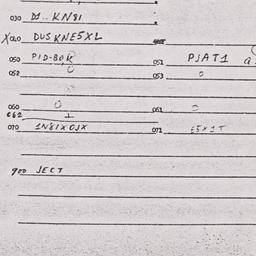 030 M..KN81
X040 DUSKNE5XL
050 PID-BOK 051 PJAT1
052 0 053 0
060 0 061 0
062 I
070 1N81XOJX 071 E5X1T
900 JECT